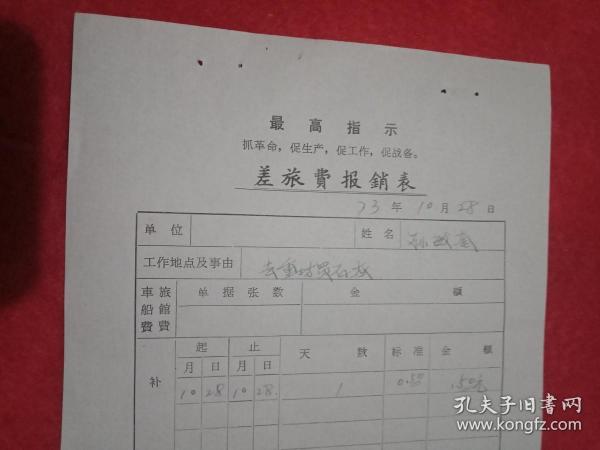 最高指示
抓革命，促生产，促工作，促战备。
差旅費报銷表
73年10月28日
单位 姓名 孙
工作地点及事由 去 买石灰
車船費 旅館費 单据张数 金額
补 起 止 天数 标准 金額
月 日 月 日
10 28 10 28. 1 0.50 .50元
孔夫子旧書网
www.kongfz.com